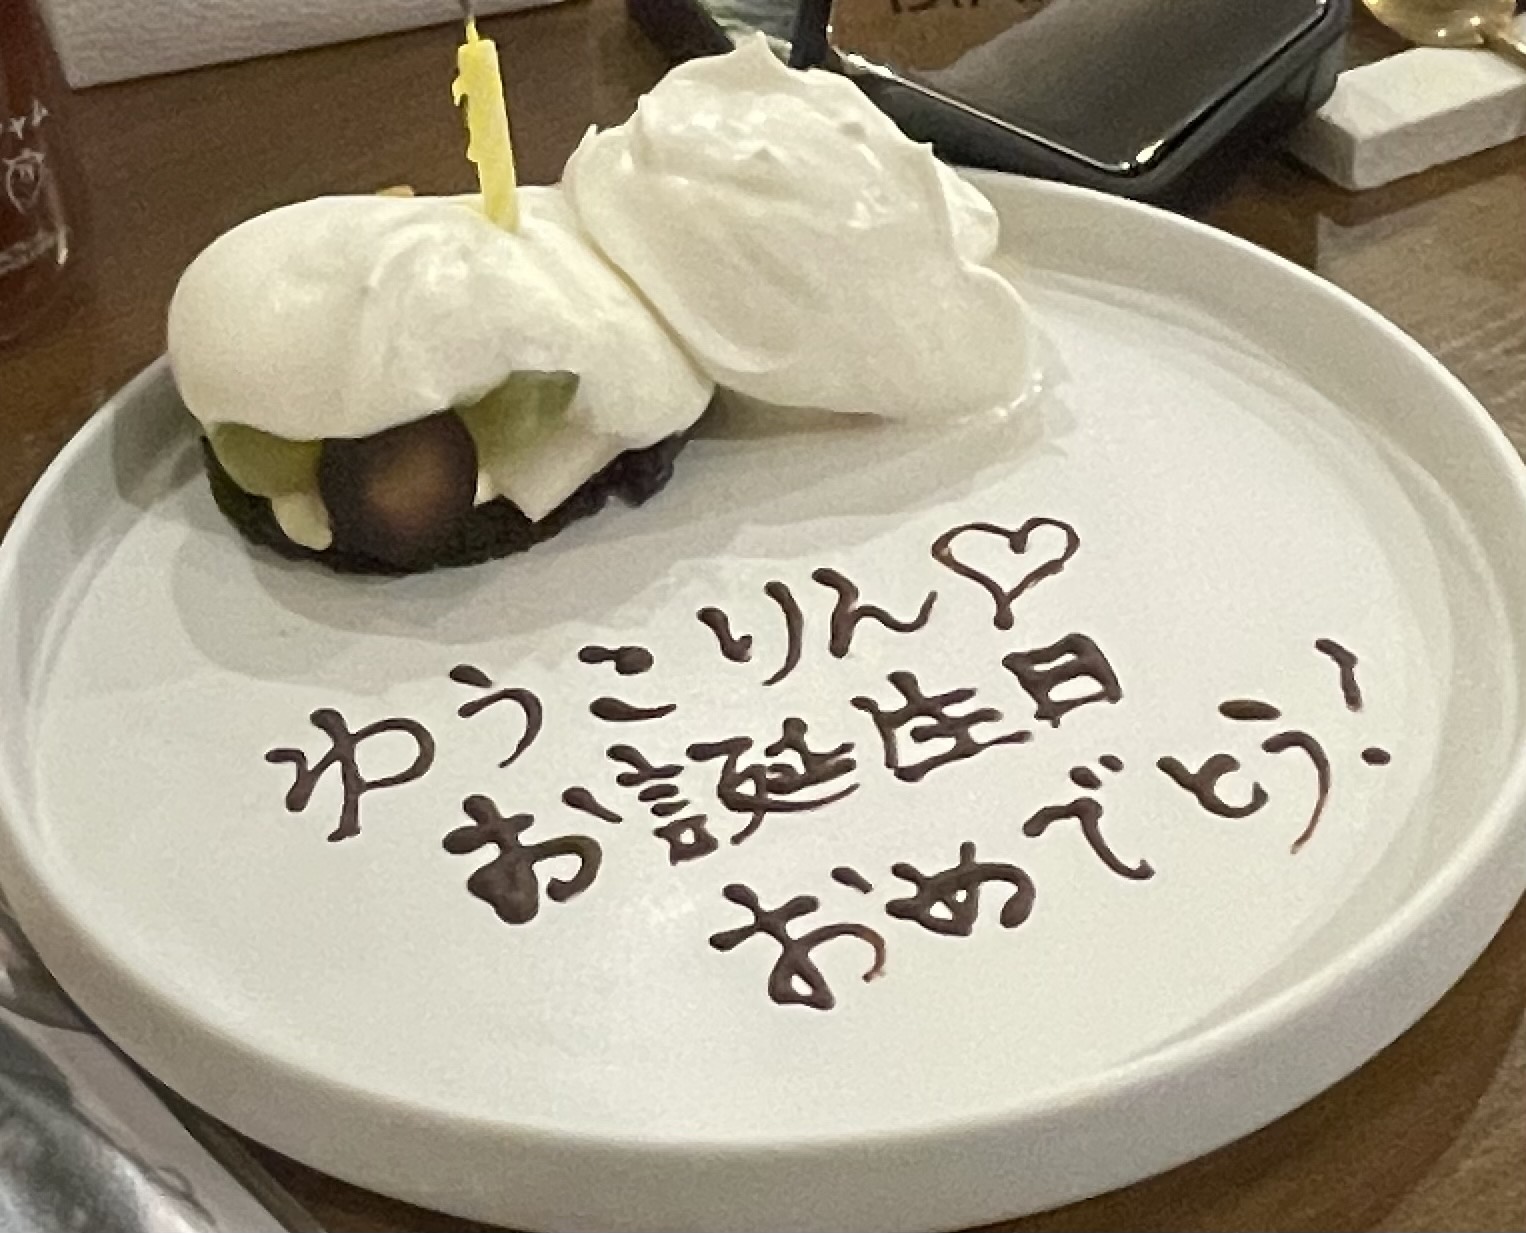 ゆうこりん♡
お誕生日
おめでとう!